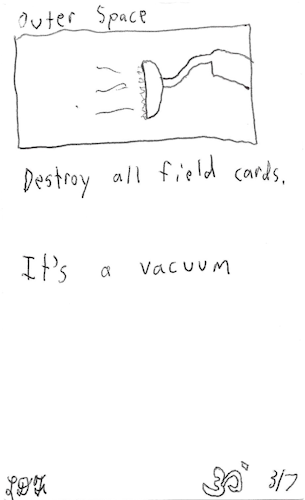 Outer Space
Destroy all field cards.
It's a vacuum
3/7